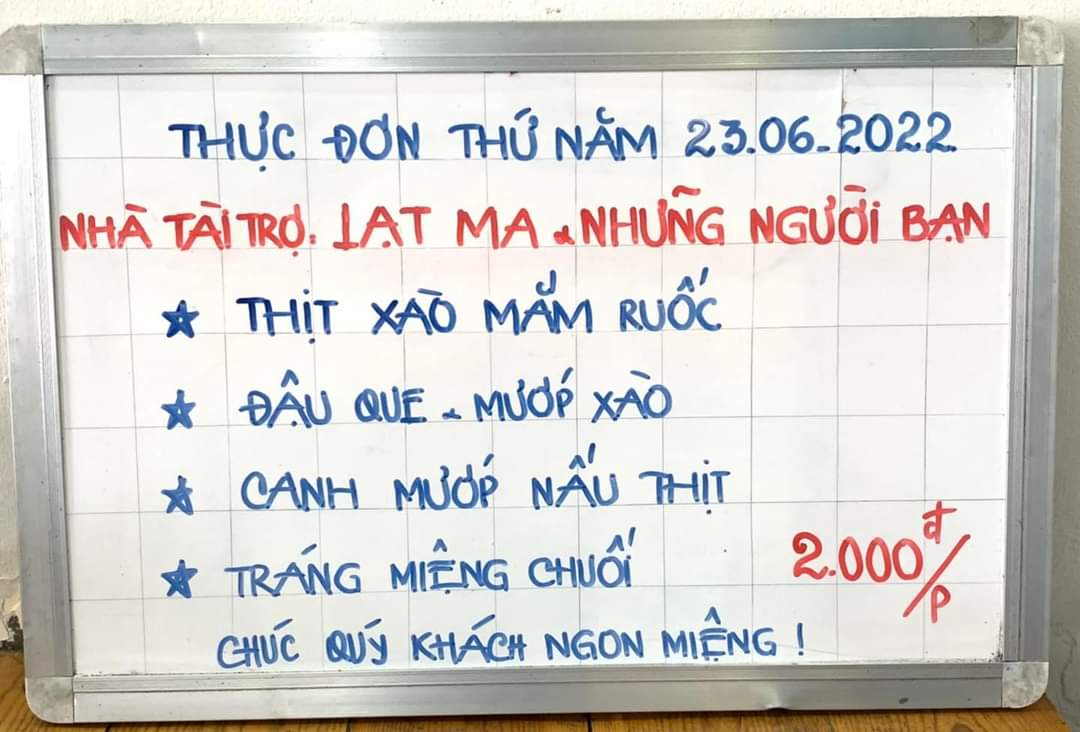 THỰC ĐƠN THỨ NĂM 23.06.2022
NHÀ TÀI TRỢ: LẠT MA & NHỮNG NGƯỜI BẠN
★ THỊT XÀO MẮM RUỐC
★ ĐẬU QUE & MƯỚP XÀO
★ CANH MƯỚP NẤU THỊT
★ TRÁNG MIỆNG CHUỐI
2.000đ/P
CHÚC QUÝ KHÁCH NGON MIỆNG !